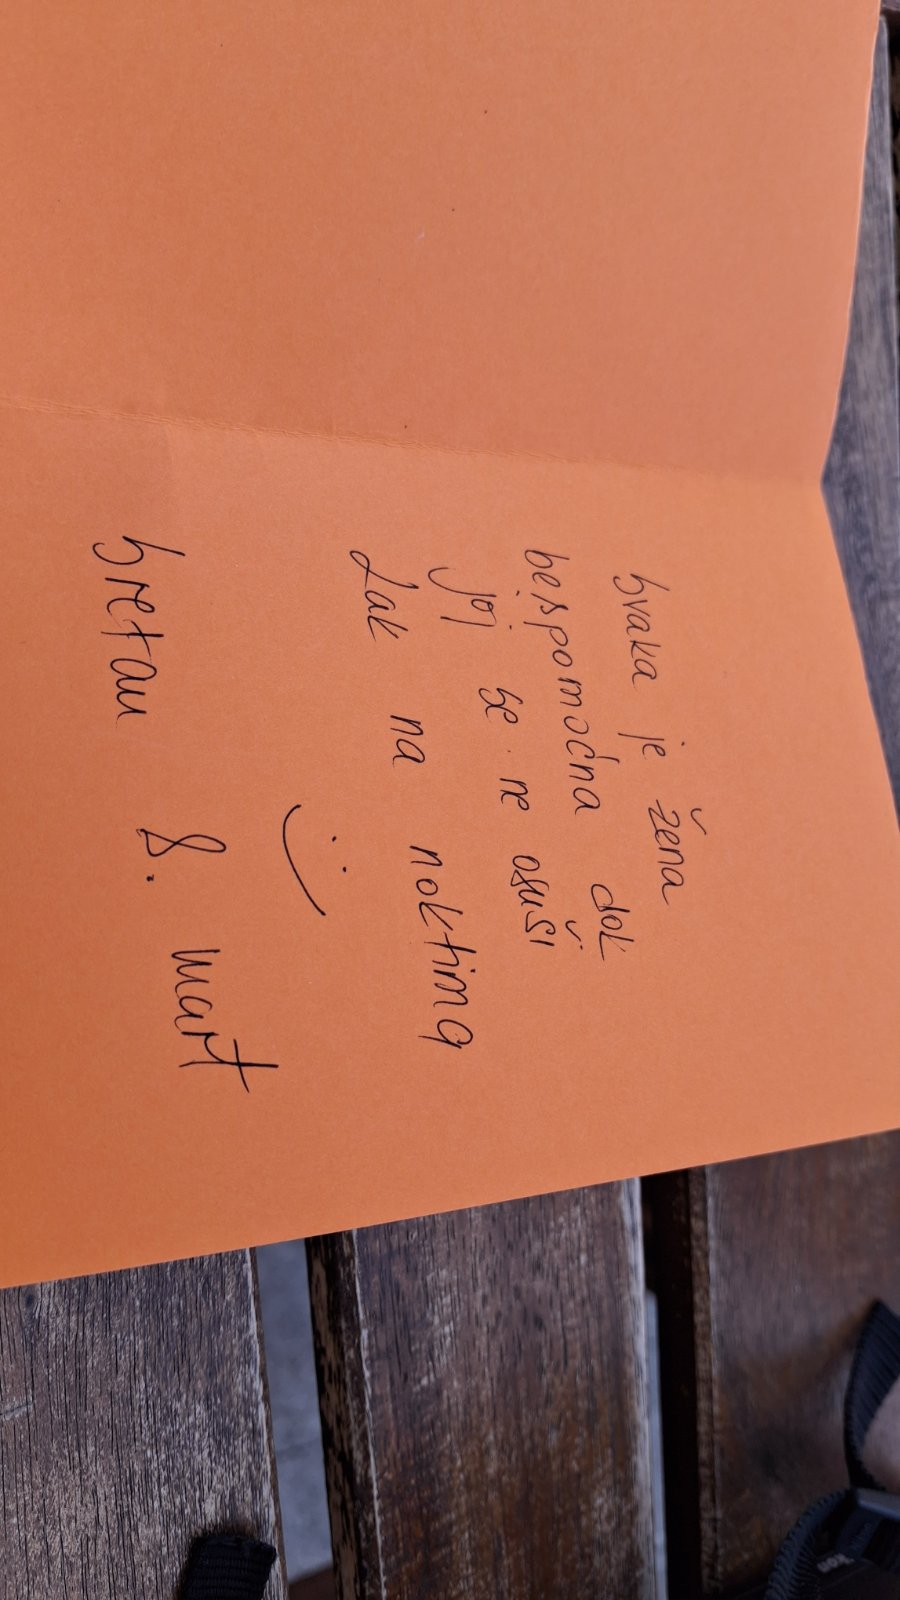 Svaka je žena
bespomoćna dok
joj se ne osuši
Lak na noktima
:)
Sretan 8. mart